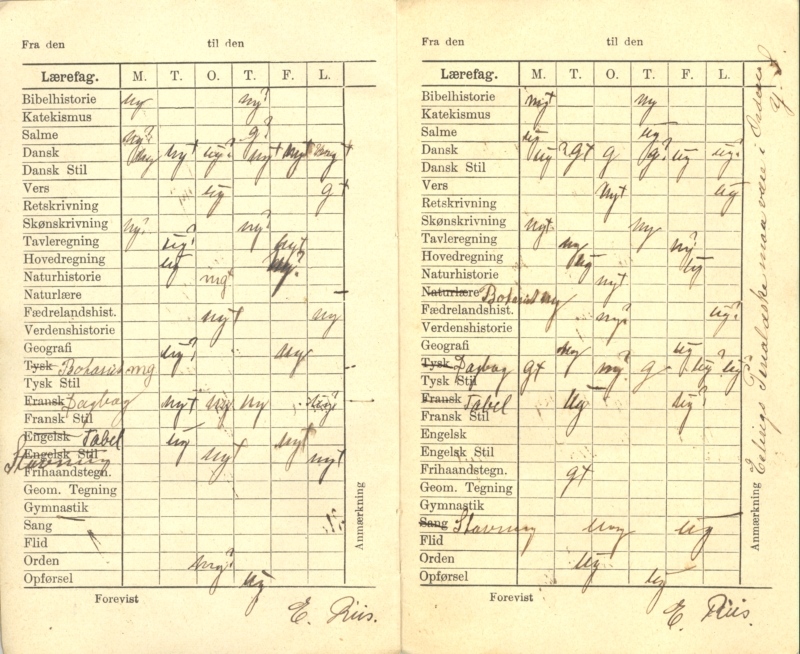 Fra den til den
Lærefag. M. T. O. T. F. L.
Bibelhistorie ug ug?
Katekismus
Salme ug? g?
Dansk ug ug+ ug? ug+ ug+ mg+
Dansk Stil
Vers ug g+
Retskrivning
Skønskrivning ug? ug?
Tavleregning ug? ug+
Hovedregning ug ug?
Naturhistorie mg+
Naturlære
Fædrelandshist. ug+ ug
Verdenshistorie
Geografi ug? ug
Tysk mg
Tysk Stil
Fransk Dagbog ug+ ug ug ug?
Fransk Stil
Engelsk Tabel ug ug+
Engelsk Stil ug+ ug+
Stavning
Frihaandstegn.
Geom. Tegning
Gymnastik
Sang
Flid
Orden mg?
Opførsel ug
Anmærkning
Forevist
E. Riis.
Fra den til den
Lærefag. M. T. O. T. F. L.
Bibelhistorie mg+ ug
Katekismus
Salme ug ug
Dansk ug? g+ g g? ug ug?
Dansk Stil
Vers ug+ ug
Retskrivning
Skønskrivning ug+ ug
Tavleregning ug ug?
Hovedregning ug ug
Naturhistorie ug+
Naturlære ug
Fædrelandshist. ug? ug?
Verdenshistorie
Geografi ug ug
Tysk Dagbog g+ mg? g ug? ug
Tysk Stil
Fransk Tabel ug ug?
Fransk Stil
Engelsk
Engelsk Stil
Frihaandstegn. g+
Geom. Tegning
Gymnastik
Sang Stavning ug ug
Flid
Orden ug
Opførsel ug
Anmærkning maa være i Orden
Forevist
E. Riis.